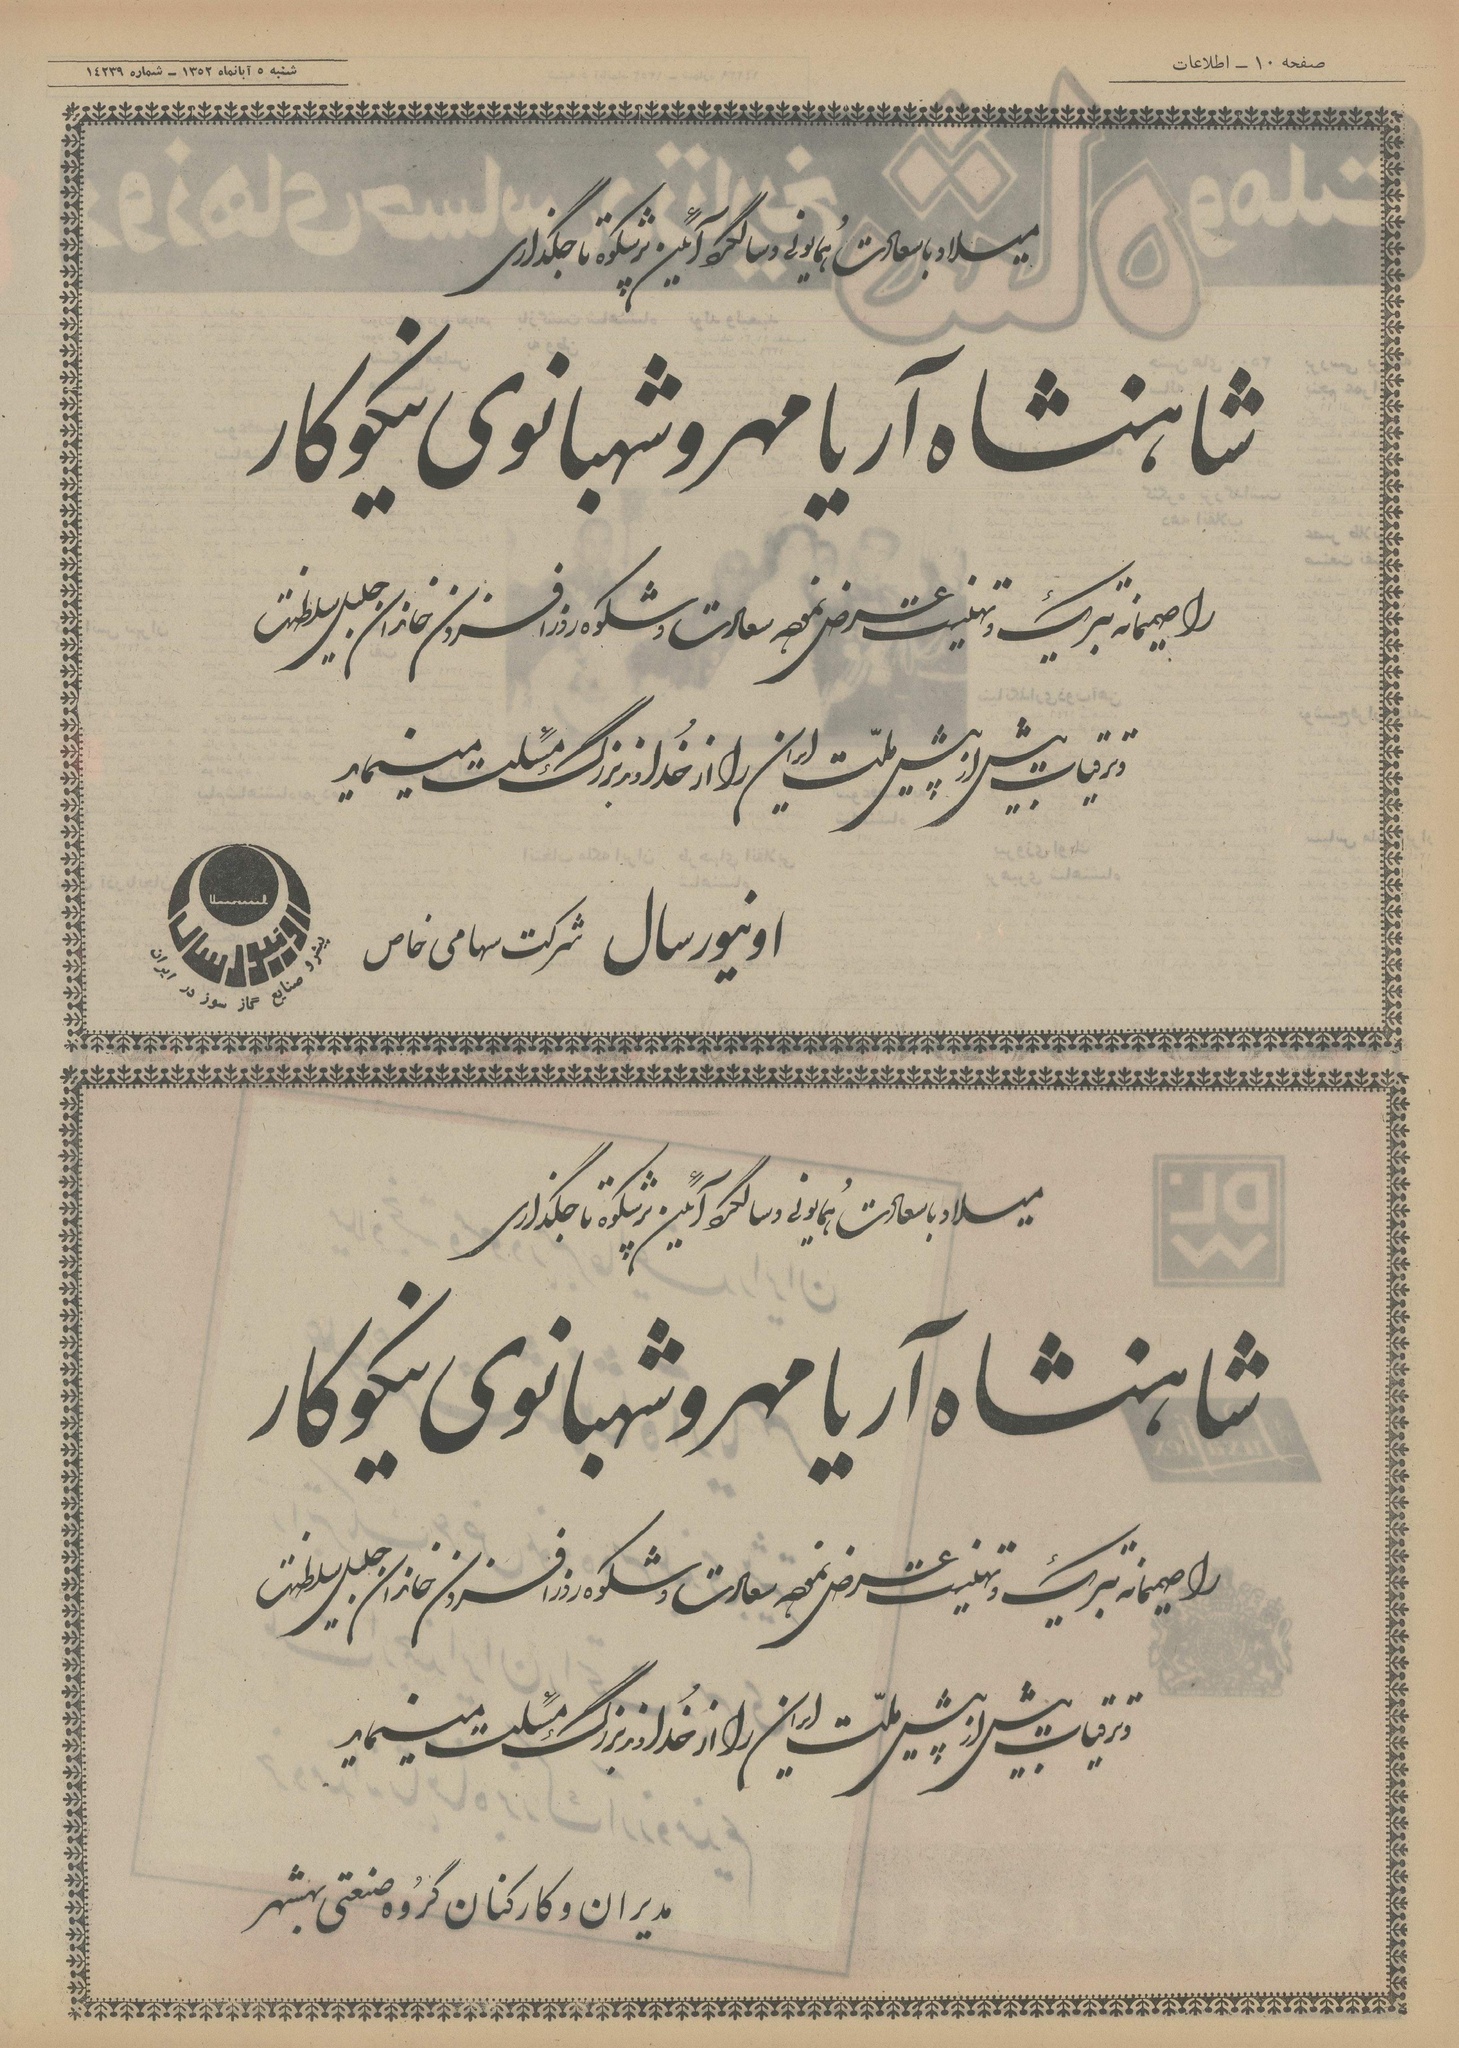 صفحه ۱۰ - اطلاعات
شنبه ۵ آبانماه ۱۳۵۲ - شماره ۱۴۲۳۹
میلاد با سعادت همایونی و سالگرد آئین پرشکوه تاجگذاری
شاهنشاه آریامهر و شهبانوی نیکوکار
را صمیمانه تبریک و تهنیت عرض نموده سعادت و شکوه روزافزون خاندان جلیل سلطنت
و ترقیات بیش از پیش ملت ایران را از خداوند بزرگ مسئلت مینماید
اونیورسال شرکت سهامی خاص
اونیورسال
پیشرو صنایع گاز سوز در ایران
میلاد با سعادت همایونی و سالگرد آئین پرشکوه تاجگذاری
شاهنشاه آریامهر و شهبانوی نیکوکار
را صمیمانه تبریک و تهنیت عرض نموده سعادت و شکوه روزافزون خاندان جلیل سلطنت
و ترقیات بیش از پیش ملت ایران را از خداوند بزرگ مسئلت مینماید
مدیران و کارکنان گروه صنعتی بهشهر